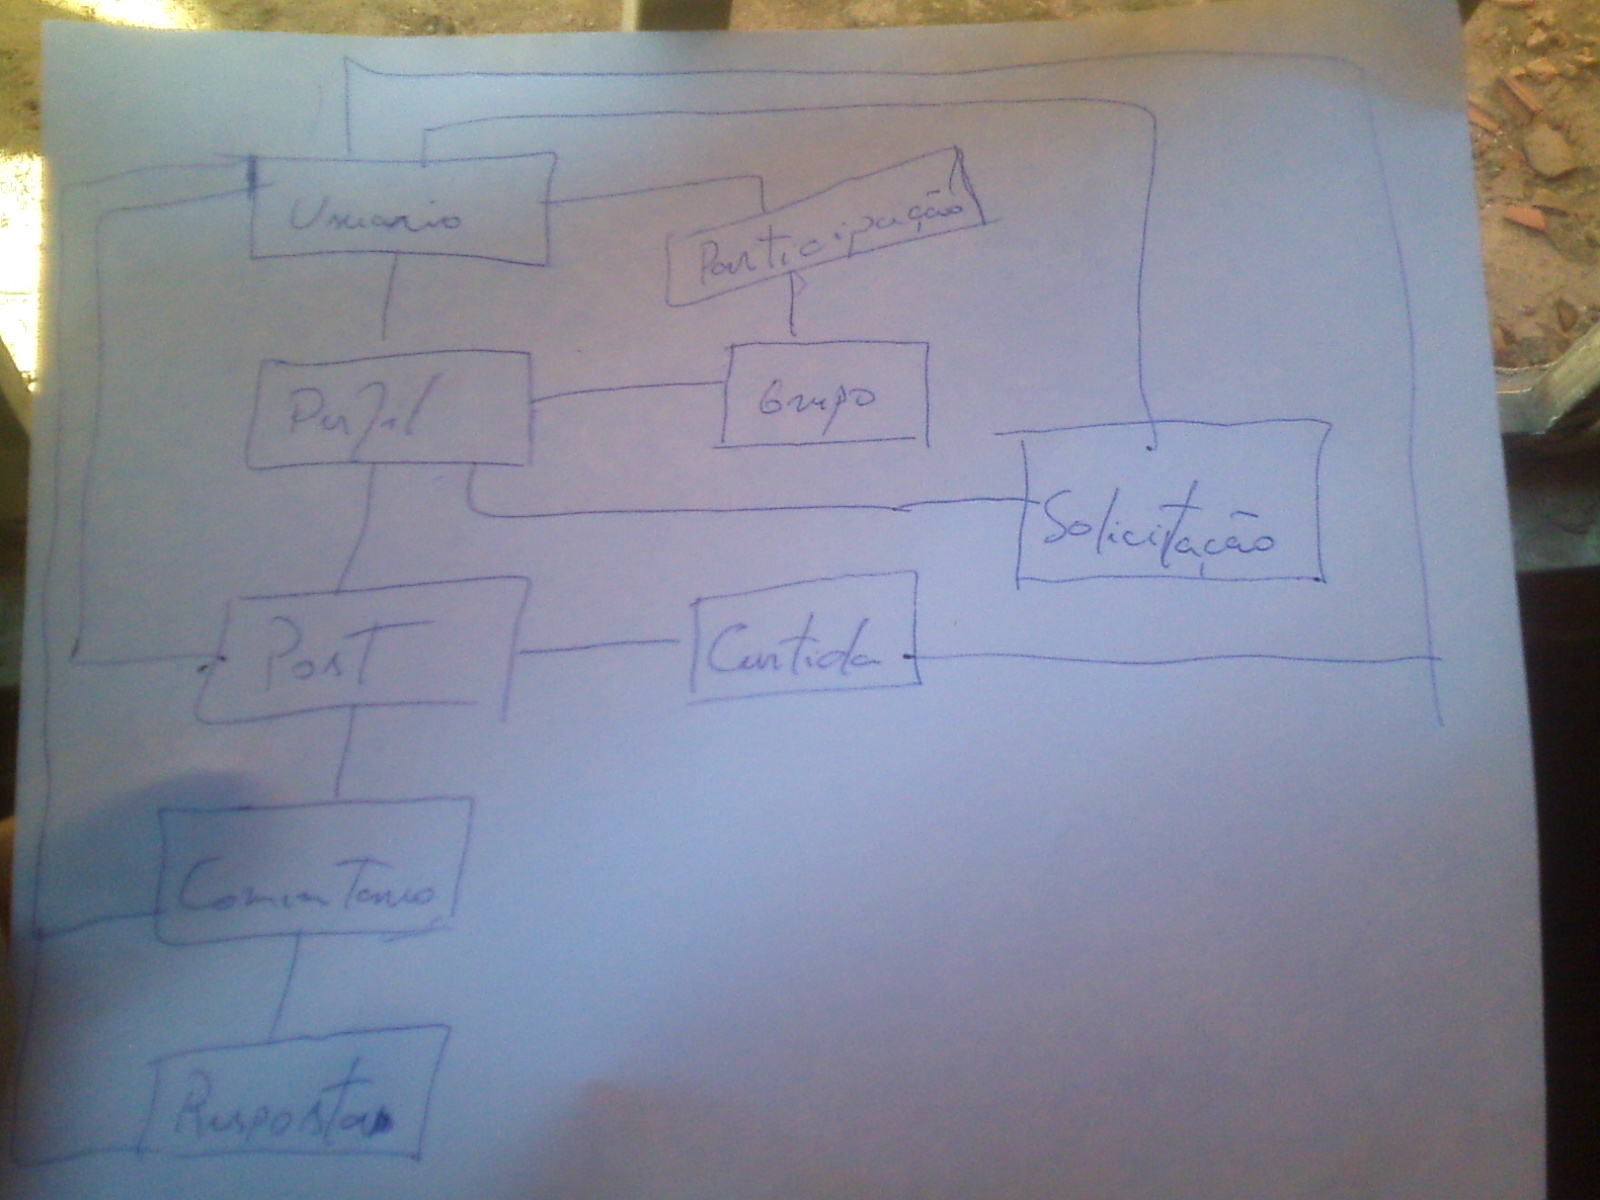 Usuario
Participação
Perfil
Grupo
Solicitação
Post
Curtida
Comentario
Resposta